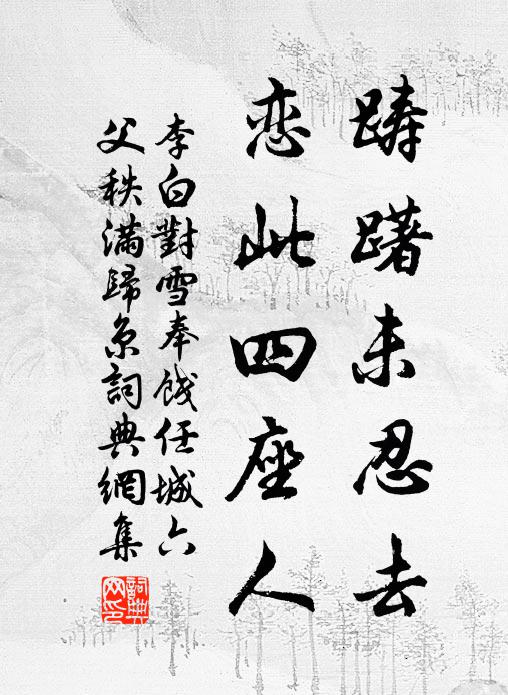 踌躇未忍去
恋此四座人
李白對雪奉餞任城六
父秩滿歸京詞典網集